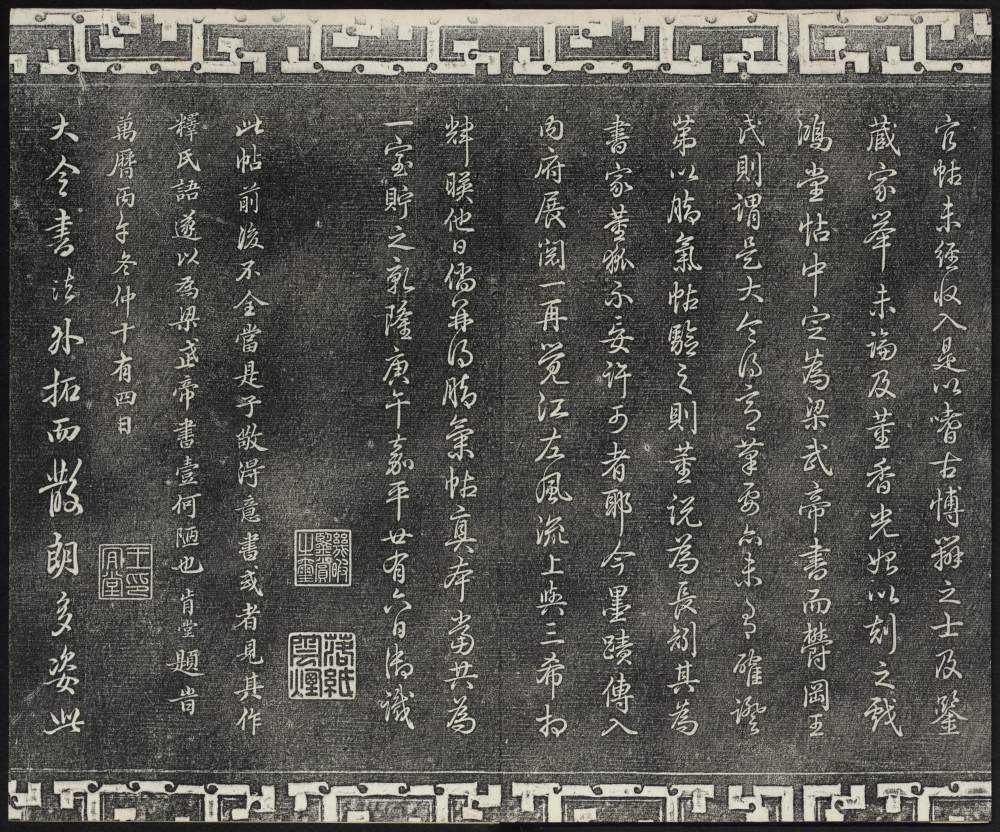 官帖未經收入是以嗜古博辯之士及鑒
藏家举未論及董香光始以刻之戲
鴻堂帖中定為梁武帝書而欝岡王
氏則謂是大令得意筆要亦未有確證
第以腊氣帖驗之則董说為長矧其為
書家董狐不妄许可者耶今墨蹟傳入
内府展閲一再覺江左風流上與三希相
輝暎他日倘并得腊氣帖真本當共為
一室貯之乾隆庚午嘉平廿有六日御識
幾暇鑒賞之璽
落紙雲煙
此帖前後不全當是子敬得意書或者見其作
釋氏語遂以為梁武帝書壹何陋也肯堂題旹
萬曆丙午冬仲十有四日
大令書法外拓而散朗多姿此